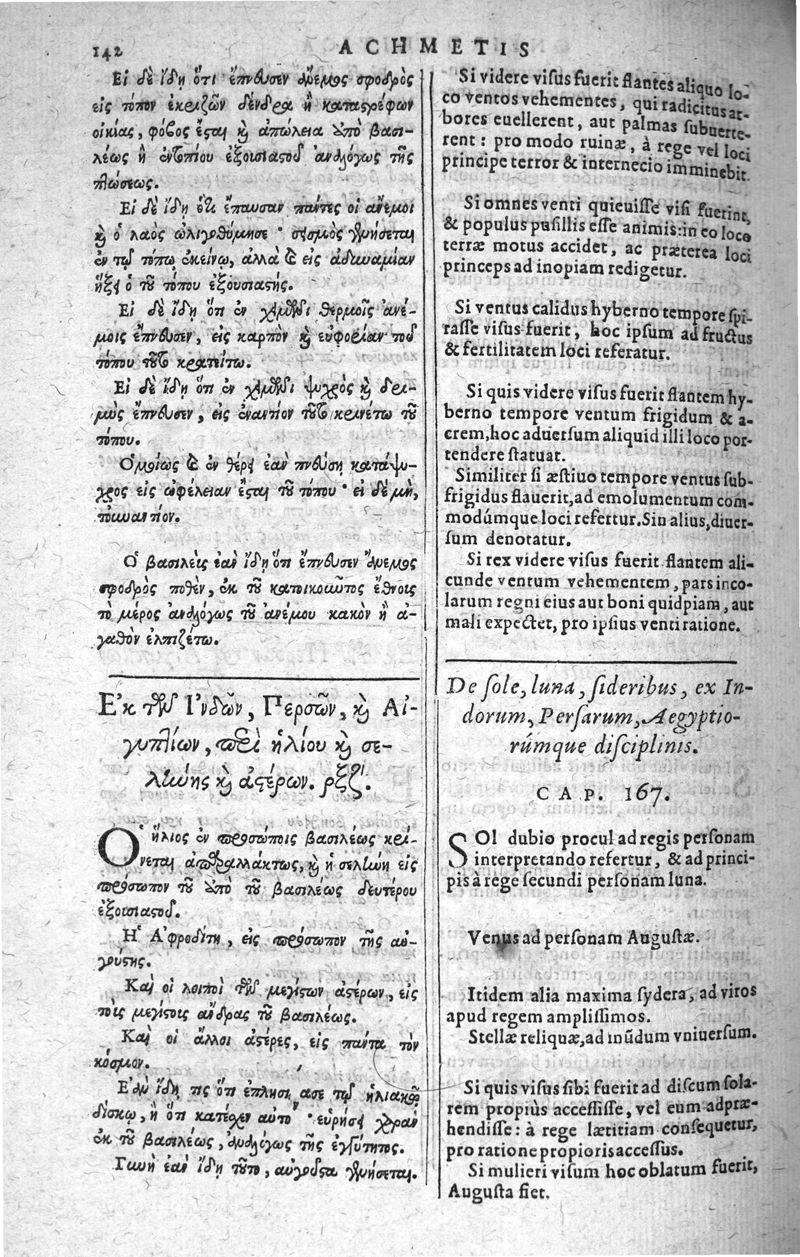 142 ACHMETIS
Εἰ δὲ ἴδῃ ὅτι ἔπνευσεν ἄνεμος σφοδρὸς
εἰς τόπον ἐκριζῶν δένδρα ἢ καταστρέφων
οἰκίας, φόβος ἔσται καὶ ἀπώλεια ὑπὸ βασι-
λέως ἢ ἐντοπίου ἐξουσιαστοῦ ἀναλόγως τῆς
πτώσεως.
Εἰ δὲ ἴδῃ ὅτι ἔπαυσαν πάντες οἱ ἄνεμοι
καὶ ὁ λαὸς ὠλιγοθύμησε· σεισμὸς γενήσεται
ἐν τῷ τόπῳ ἐκείνῳ, ἀλλὰ καὶ εἰς ἀδυναμίαν
ἥξει ὁ τοῦ τόπου ἐξουσιαστής.
Εἰ δὲ ἴδῃ ὅτι ἐν χειμῶνι θερμοῖς ἀνέ-
μοις ἔπνευσεν, εἰς καρπὸν καὶ εὐφορίαν τοῦ
τόπου τοῦτο κρινέτω.
Εἰ δὲ ἴδῃ ὅτι ἐν χειμῶνι ψυχρὸς καὶ δρι-
μὺς ἔπνευσεν, εἰς ἐναντίον τοῦτο κρινέτω τοῦ
τόπου.
Ὁμοίως καὶ ἐν θέρει ἐὰν πνεύσῃ κατάψυ-
χρος εἰς ὠφέλειαν ἔσται τοῦ τόπου· εἰ δὲ μὴ,
τοὐναντίον.
Ὁ βασιλεὺς ἐὰν ἴδῃ ὅτι ἔπνευσεν ἄνεμος
σφοδρὸς ποθὲν, ἐκ τοῦ κατοικοῦντος ἔθνους
τὸ μέρος ἀναλόγως τοῦ ἀνέμου κακὸν ἢ ἀ-
γαθὸν ἐλπιζέτω.
Ἐκ τῶν Ἰνδῶν, Περσῶν, καὶ Αἰ-
γυπτίων, περὶ ἡλίου καὶ σε-
λήνης καὶ ἀστέρων. ρξζʹ.
Ὁ ἥλιος ἐν προσώποις βασιλέως κρί-
νεται ἀπαραλλάκτως, καὶ ἡ σελήνη εἰς
πρόσωπον τοῦ ὑπὸ τοῦ βασιλέως δευτέρου
ἐξουσιαστοῦ.
Ἡ Ἀφροδίτη, εἰς πρόσωπον τῆς αὐ-
γούστης.
Καὶ οἱ λοιποὶ τῶν μεγίστων ἀστέρων, εἰς
τοὺς μεγίστους ἄνδρας τοῦ βασιλέως.
Καὶ οἱ ἄλλοι ἀστέρες, εἰς πάντα τὸν
κόσμον.
Ἐὰν ἴδῃ τις ὅτι ἐπλησίασε τῷ ἡλιακῷ
δίσκῳ, ἢ ὅτι κατέχει αὐτὸ· εὑρήσει χαρὰν
ἐκ τοῦ βασιλέως, ἀναλόγως τῆς ἐγγύτητος.
Γυνὴ ἐὰν ἴδῃ τοῦτο, αὐγοῦστα γενήσεται.
Si videre visus fuerit flantes aliquo lo-
co ventos vehementes, qui radicitus ar-
bores euellerent, aut palmas subuerte-
rent: pro modo ruinæ, à rege vel loci
principe terror & internecio imminebit.
Si omnes venti quieuisse visi fuerint,
& populus pusillis esse animis: in eo loco
terræ motus accidet, ac præterea loci
princeps ad inopiam redigetur.
Si ventus calidus hyberno tempore spi-
rasse visus fuerit, hoc ipsum ad fructus
& fertilitatem loci referatur.
Si quis videre visus fuerit flantem hy-
berno tempore ventum frigidum & a-
crem, hoc aduersum aliquid illi loco por-
tendere statuat.
Similiter si æstiuo tempore ventus sub-
frigidus flauerit, ad emolumentum com-
modúmque loci refertur. Sin alius, diuer-
sum denotatur.
Si rex videre visus fuerit flantem ali-
cunde ventum vehementem, pars inco-
larum regni eius aut boni quidpiam, aut
mali expectet, pro ipsius venti ratione.
De sole, luna, sideribus, ex In-
dorum, Persarum, Aegyptio-
rúmque disciplinis.
CAP. 167.
SOl dubio procul ad regis personam
interpretando refertur, & ad princi-
pis à rege secundi personam luna.
Venus ad personam Augustæ.
Itidem alia maxima sydera, ad viros
apud regem amplissimos.
Stellæ reliquæ, ad mūdum vniuersum.
Si quis visus sibi fuerit ad discum sola-
rem propiùs accessisse, vel eum adpræ-
hendisse: à rege lætitiam consequetur,
pro ratione propioris accessus.
Si mulieri visum hoc oblatum fuerit,
Augusta fiet.